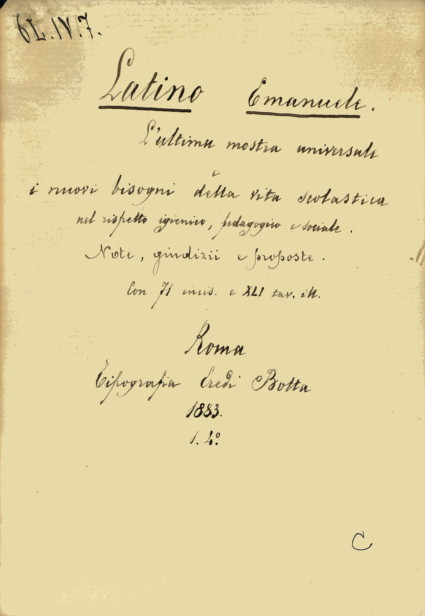 6L.IV.7.
Latino Emanuele.
L'ultima mostra universale
e
i nuovi bisogni della vita scolastica
nel rispetto igienico, pedagogico e sociale.
Note, giudizii e proposte.
Con 71 incis. e XLI tav. ill.
Roma
Tipografia Eredi Botta
1883.
1. 4º
C